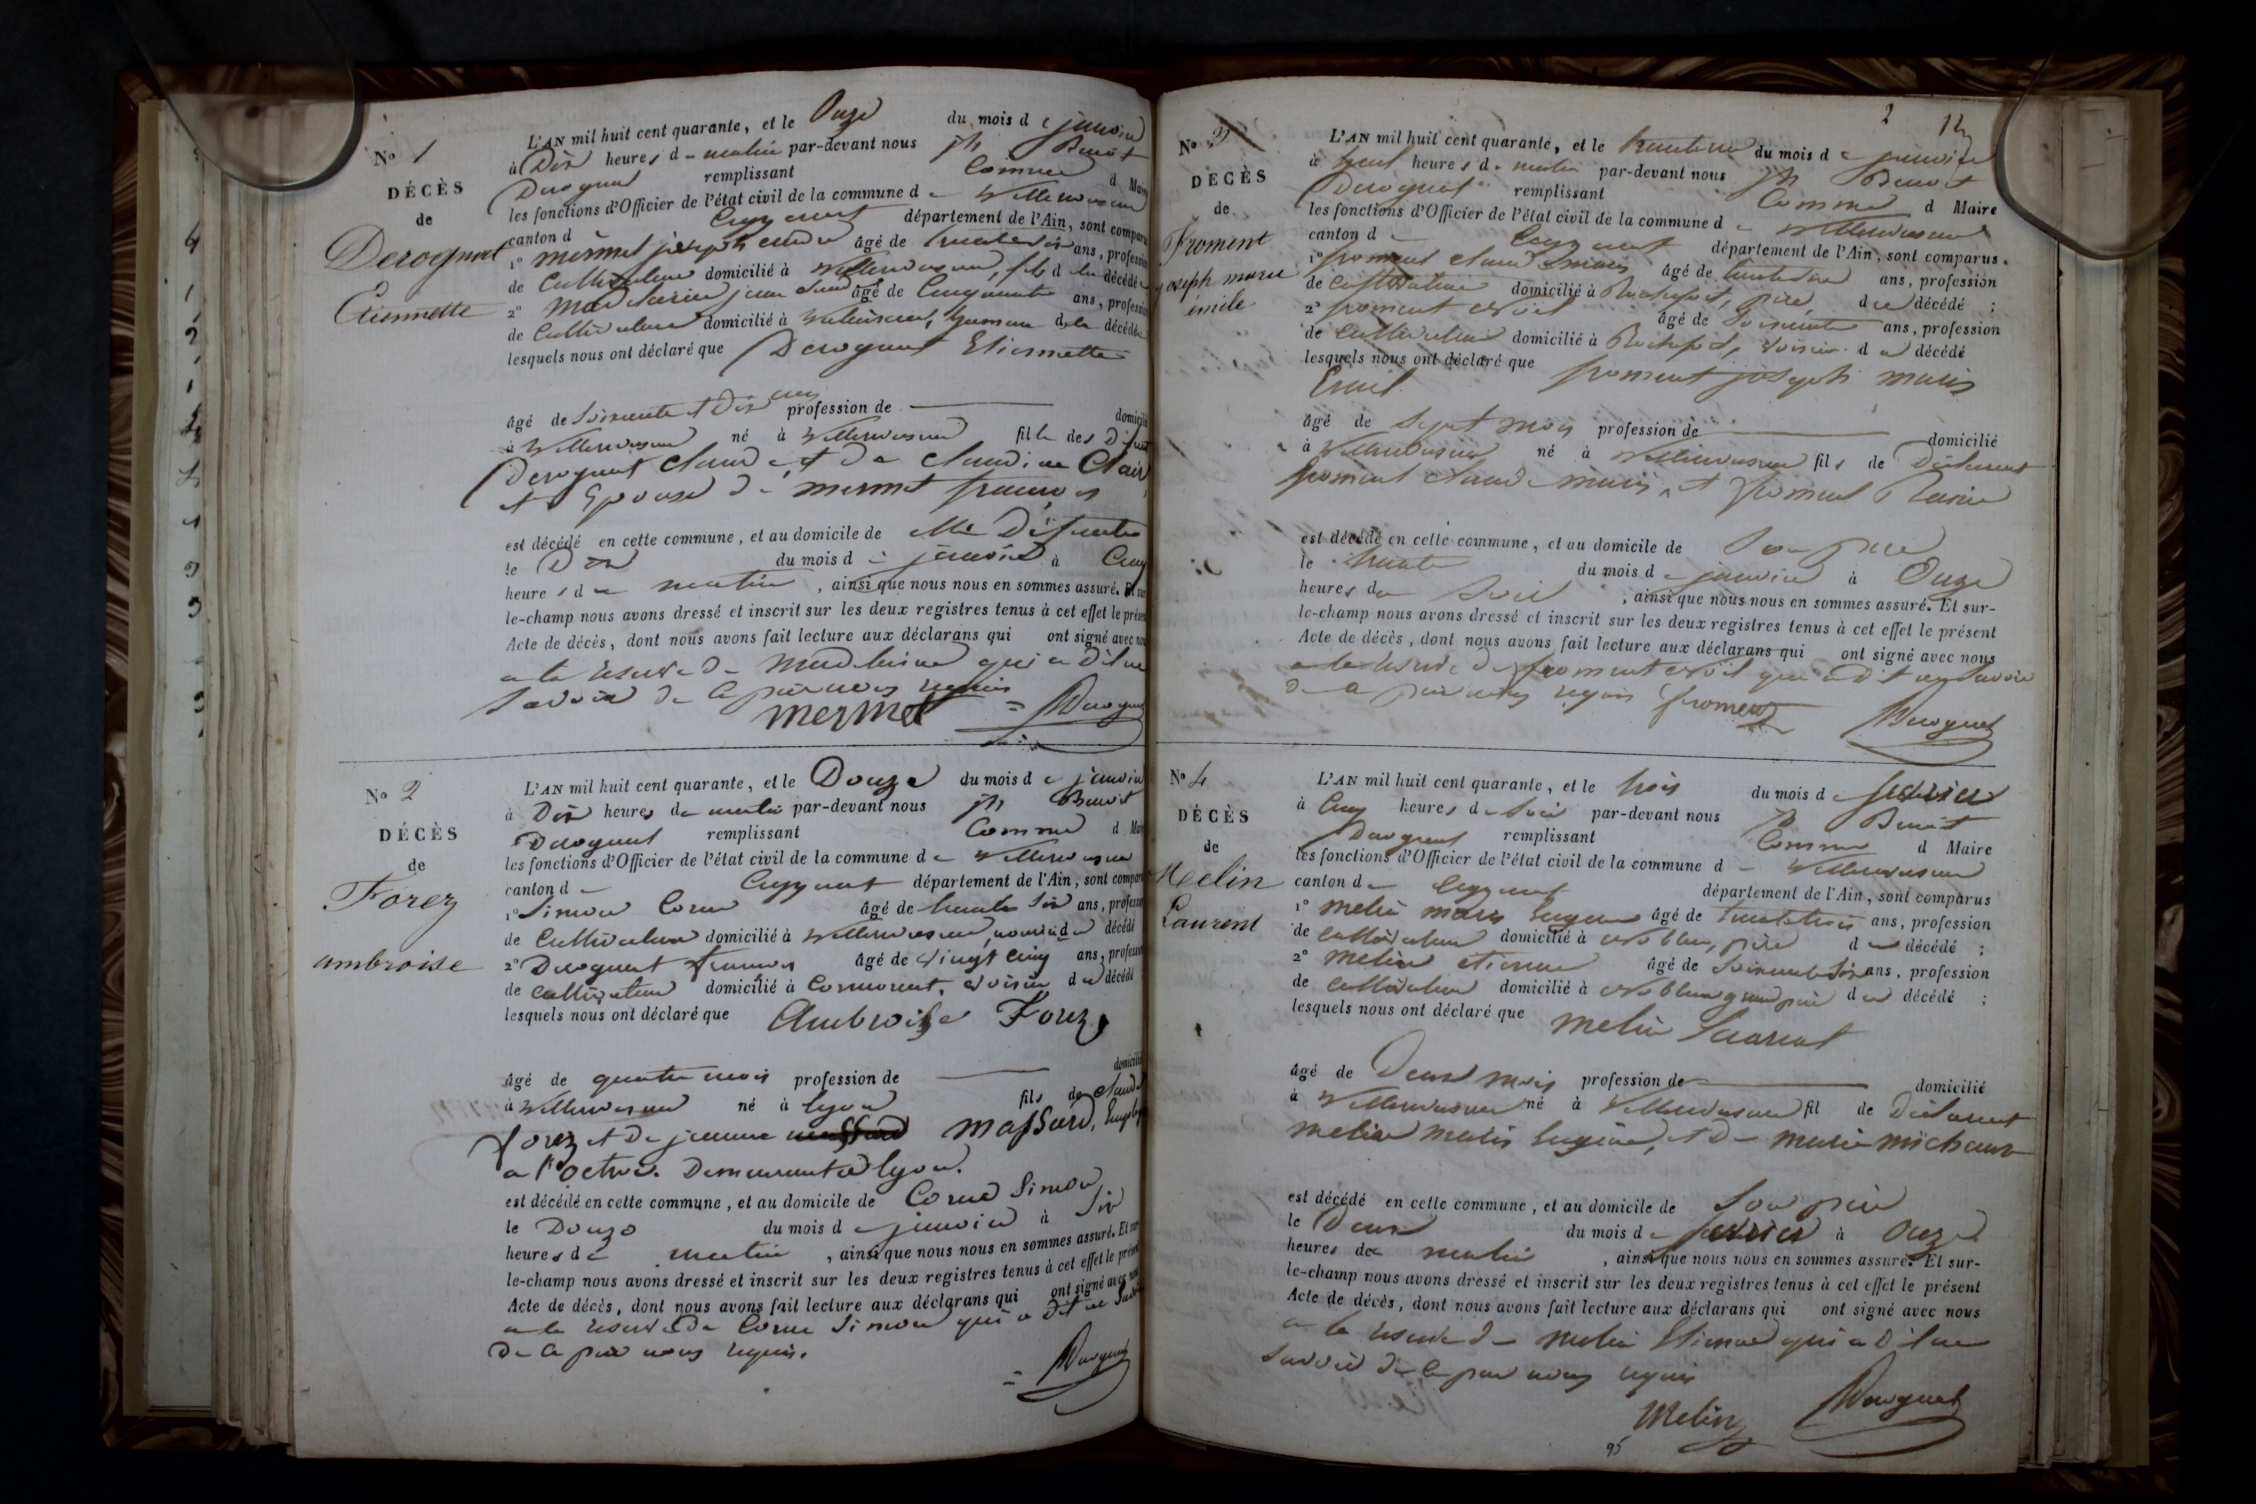 No 1
DÉCÈS
de
Derognat
Etiennette
L'AN mil huit cent quarante, et le Onze du mois de janvier
à Dix heures du matin par-devant nous jh Benoit
Derognat remplissant Comme d Maire
les fonctions d'Officier de l'état civil de la commune de Villereversure
canton d Ceyzeriat département de l'Ain, sont comparus
1° mermet joseph âgé de trente six ans, profession
de Cultivateur domicilié à Villereversure, fils d la décédée
2° jean âgé de Cinquante ans, profession
de Cultivateur domicilié à d la décédée
lesquels nous ont déclaré que Derognat Etiennette
âgé de Soixante et Dix ans profession de domicilié
à Villereversure né à Villereversure fille des Défunts
Derognat Claude et de Claudine Clair
et Epouse de mermet françois
est décédé en cette commune, et au domicile de elle Défunte
le Dix du mois de janvier à Cinq
heures du matin, ainsi que nous nous en sommes assuré. Et sur-
le-champ nous avons dressé et inscrit sur les deux registres tenus à cet effet le présent
Acte de décès, dont nous avons fait lecture aux déclarans qui ont signé avec nous
a la réserve de qui a dit ne
Savoir de ce par nous requis
mermet Derognat
No 2
DÉCÈS
de
Forez
ambroise
L'AN mil huit cent quarante, et le Douze du mois de janvier
à Dix heures du matin par-devant nous jh Benoit
Derognat remplissant Comme d Maire
les fonctions d'Officier de l'état civil de la commune de Villereversure
canton de Ceyzeriat département de l'Ain, sont comparus
1° Simon Corne âgé de trente six ans, profession
de Cultivateur domicilié à Villereversure, du décédé
2° Derognat françois âgé de Vingt Cinq ans, profession
de Cultivateur domicilié à Cormorent, voisin du décédé
lesquels nous ont déclaré que Ambroise Forez
âgé de quatre mois profession de domicilié
à Villereversure né à lyon fils de Claude
forez et De jeanne massard,
a l'octroi Demeurant a lyon.
est décédé en cette commune, et au domicile de Corne Simon
le Douze du mois de janvier à Six
heures du matin, ainsi que nous nous en sommes assuré. Et sur-
le-champ nous avons dressé et inscrit sur les deux registres tenus à cet effet le présent
Acte de décès, dont nous avons fait lecture aux déclarans qui ont signé avec nous
a la réserve de Corne Simon qui a Dit ne Savoir
De ce par nous requis.
Derognat
2
No 3
DÉCÈS
de
Froment
joseph marie
émile
L'AN mil huit cent quarante, et le trente un du mois de janvier
à heures du matin par-devant nous jh Benoit
Derognat remplissant Comme d Maire
les fonctions d'Officier de l'état civil de la commune de Villereversure
canton de Ceyzeriat département de l'Ain, sont comparus.
1° froment claude marie âgé de ans, profession
de Cultivateur domicilié à Rochefort, père, du décédé ;
2° froment âgé de Soixante ans, profession
de Cultivateur domicilié à Rochefort, voisin du décédé
lesquels nous ont déclaré que froment joseph marie
Emil
âgé de Sept mois profession de domicilié
à Villereversure né à Villereversure fils de Déclarant
froment claude marie, et froment
est décédé en cette commune, et au domicile de Son père
le trente du mois de janvier à Onze
heures du Soir, ainsi que nous nous en sommes assuré. Et sur-
le-champ nous avons dressé et inscrit sur les deux registres tenus à cet effet le présent
Acte de décès, dont nous avons fait lecture aux déclarans qui ont signé avec nous
a la réserve de froment qui a Dit ne Savoir
de ce par nous requis froment Derognat
No 4
DÉCÈS
de
Melin
Laurent
L'AN mil huit cent quarante, et le trois du mois de fevrier
à Cinq heures du Soir par-devant nous jh Benoit
Derognat remplissant Comme d Maire
les fonctions d'Officier de l'état civil de la commune de Villereversure
canton de Ceyzeriat département de l'Ain, sont comparus
1° melin marie Eugene âgé de trente trois ans, profession
de Cultivateur domicilié à Noblens, père du décédé ;
2° melin etienne âgé de Soixante Six ans, profession
de Cultivateur domicilié à Noblens grand père du décédé ;
lesquels nous ont déclaré que melin Laurent
âgé de Deux mois profession de domicilié
à Villereversure né à Villereversure fil de Déclarant
melin marie Eugène, et de marie michaux
est décédé en cette commune, et au domicile de Son père
le Deux du mois de fevrier à Onze
heures du matin, ainsi que nous nous en sommes assuré. Et sur-
le-champ nous avons dressé et inscrit sur les deux registres tenus à cet effet le présent
Acte de décès, dont nous avons fait lecture aux déclarans qui ont signé avec nous
a la réserve de melin Etienne qui a Dit ne
Savoir de ce par nous requis
Melin Derognat
95